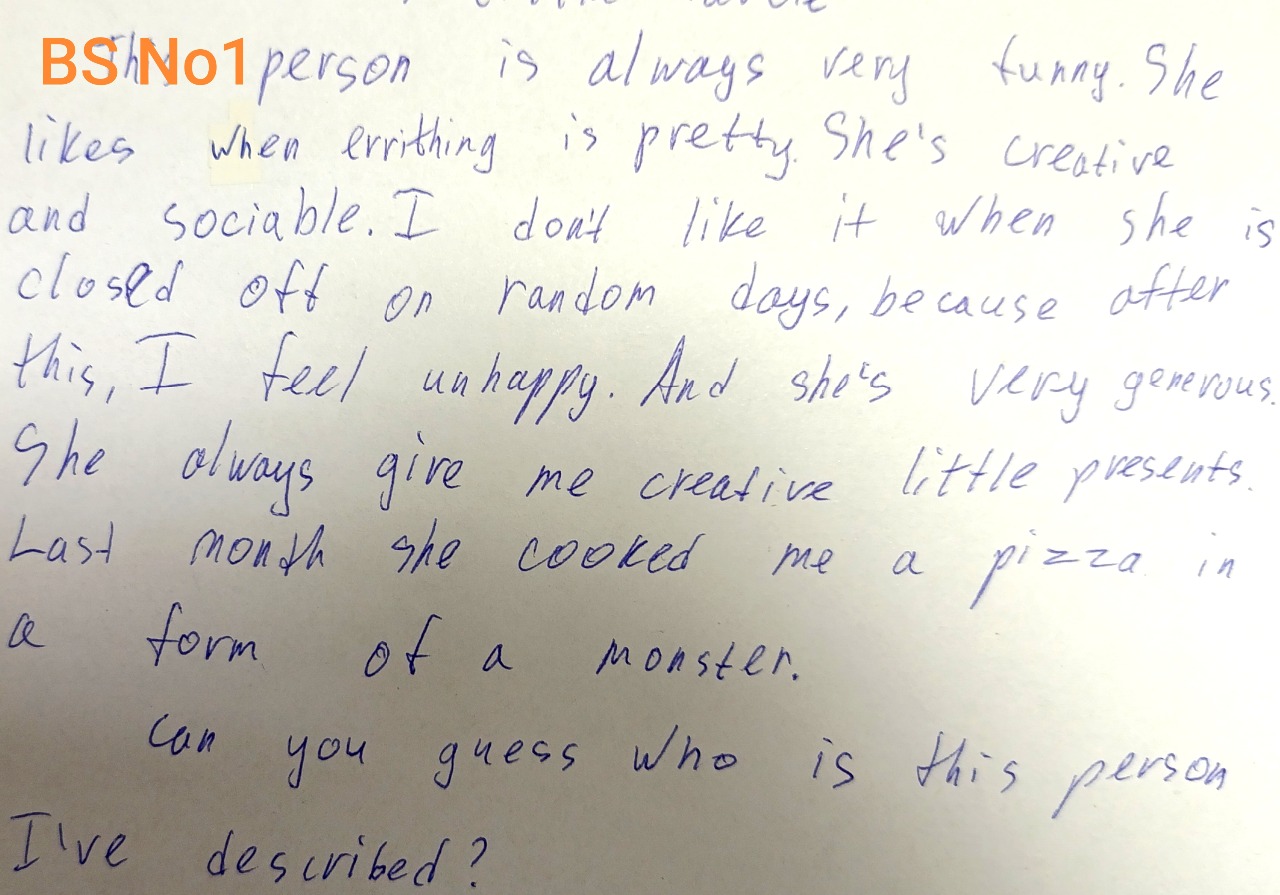 BS No1 person is always very funny. She
likes when errithing is pretty. She's creative
and sociable. I don't like it when she is
closed off on random days, because after
this, I feel unhappy. And she's very generous.
She always give me creative little presents.
Last month she cooked me a pizza in
a form of a monster.
Can you guess who is this person
I've described?